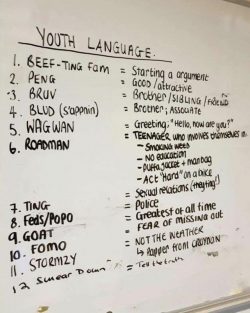 YOUTH LANGUAGE.
1. BEEF-TING fam = Starting a argument
2. PENG = Good /attractive
3. BRUV = Brother/SIBLING / FRIEND
4. BLUD (s'appnin) = Brother; ASSOCIATE
5. WAGWAN = Greeting; "Hello, how are you?"
6. ROADMAN = TEENAGER who involves themselves in:
- Smoking weed
- No education
- Puffa jacket + man bag
- Act "Hard" on a bike
7. TING = Sexual relations
8. Feds/POPO = Police
9. GOAT = Greatest of all time
10. FOMO = FEAR OF MISSING OUT
11. STORMZY = NOT THE WEATHER
→ Rapper from CROYDON
12 Swear Down = Tell the truth